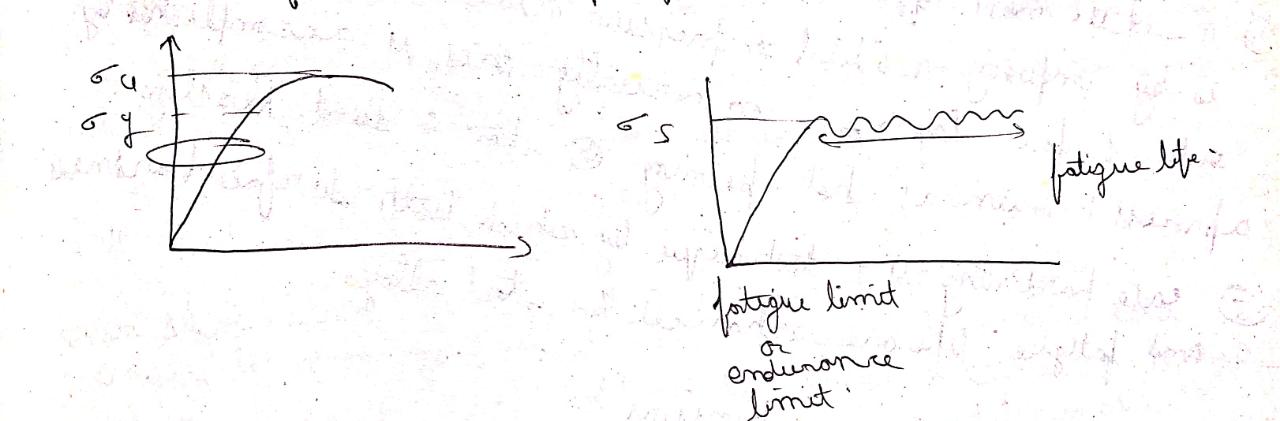 σ u
σ y
σ s
fatigue life.
fatigue limit
or
endurance
limit.